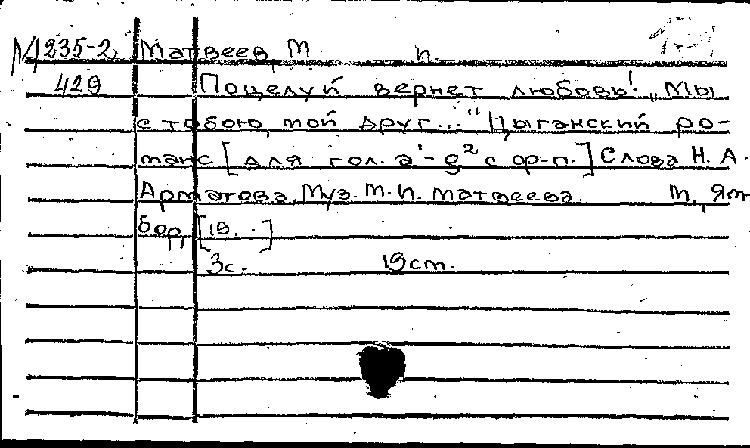 М235-2 Матвеев, М. П.
429 Поцелуй вернет любовь! „Мы
с тобою, мой друг..." Цыганский ро-
манс [для гол. a¹-g² с ф-п.] Слова Н. А.
Арматова. Муз. М. П. Матвеева. М., Ям
бор, [19..]
3с. 19 ст.